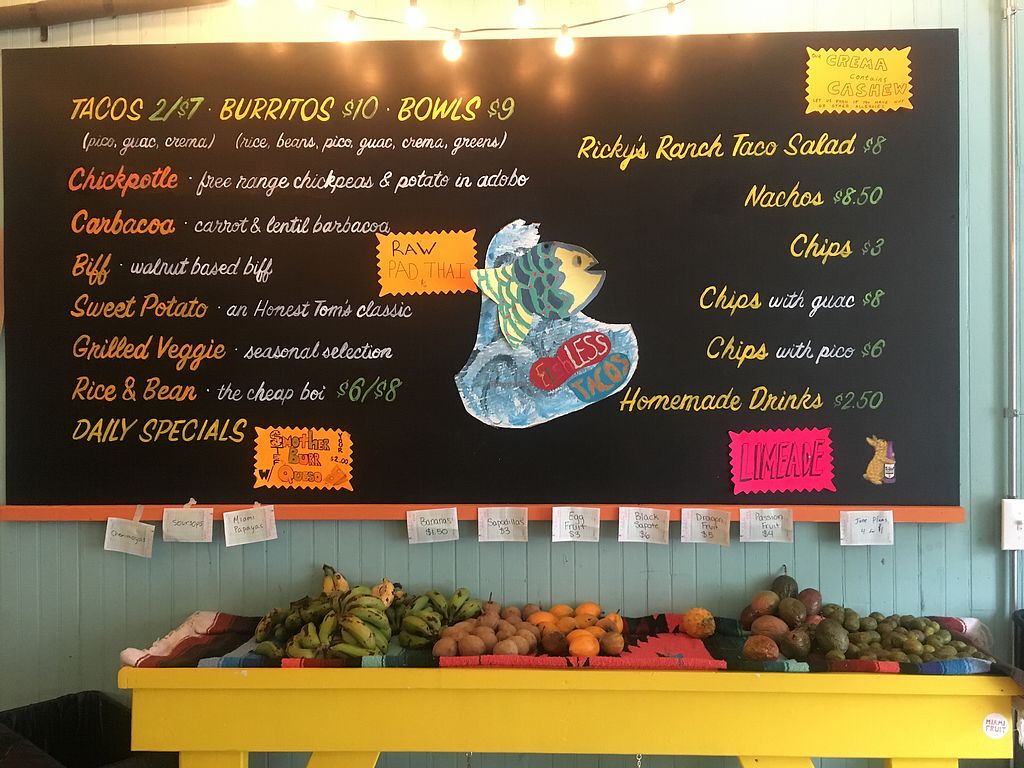 TACOS 2/$7 · BURRITOS $10 · BOWLS $9
(pico, guac, crema) (rice, beans, pico, guac, crema, greens)
Chickpotle · free range chickpeas & potato in adobo
Carbacoa · carrot & lentil barbacoa
Biff · walnut based biff
Sweet Potato · an Honest Tom's classic
Grilled Veggie · seasonal selection
Rice & Bean · the cheap boi $6/$8
DAILY SPECIALS
SMOTHER
YOUR
BURR
$2.00
W/ QUESO
RAW
PAD THAI
FishLESS
TACOS
OUR CREMA
contains
CASHEW
LET US KNOW IF YOU HAVE NUT
OR OTHER ALLERGIES
Ricky's Ranch Taco Salad $8
Nachos $8.50
Chips $3
Chips with guac $8
Chips with pico $6
Homemade Drinks $2.50
LIMEADE
Cherimoyas
Soursops
Miami
Papayas
Bananas
$1.50
Sapodillas
$3
Egg
Fruit
$3
Black
Sapote
$6
Dragon
Fruit
$5
Passion
Fruit
$4
MIAMI
FRUIT